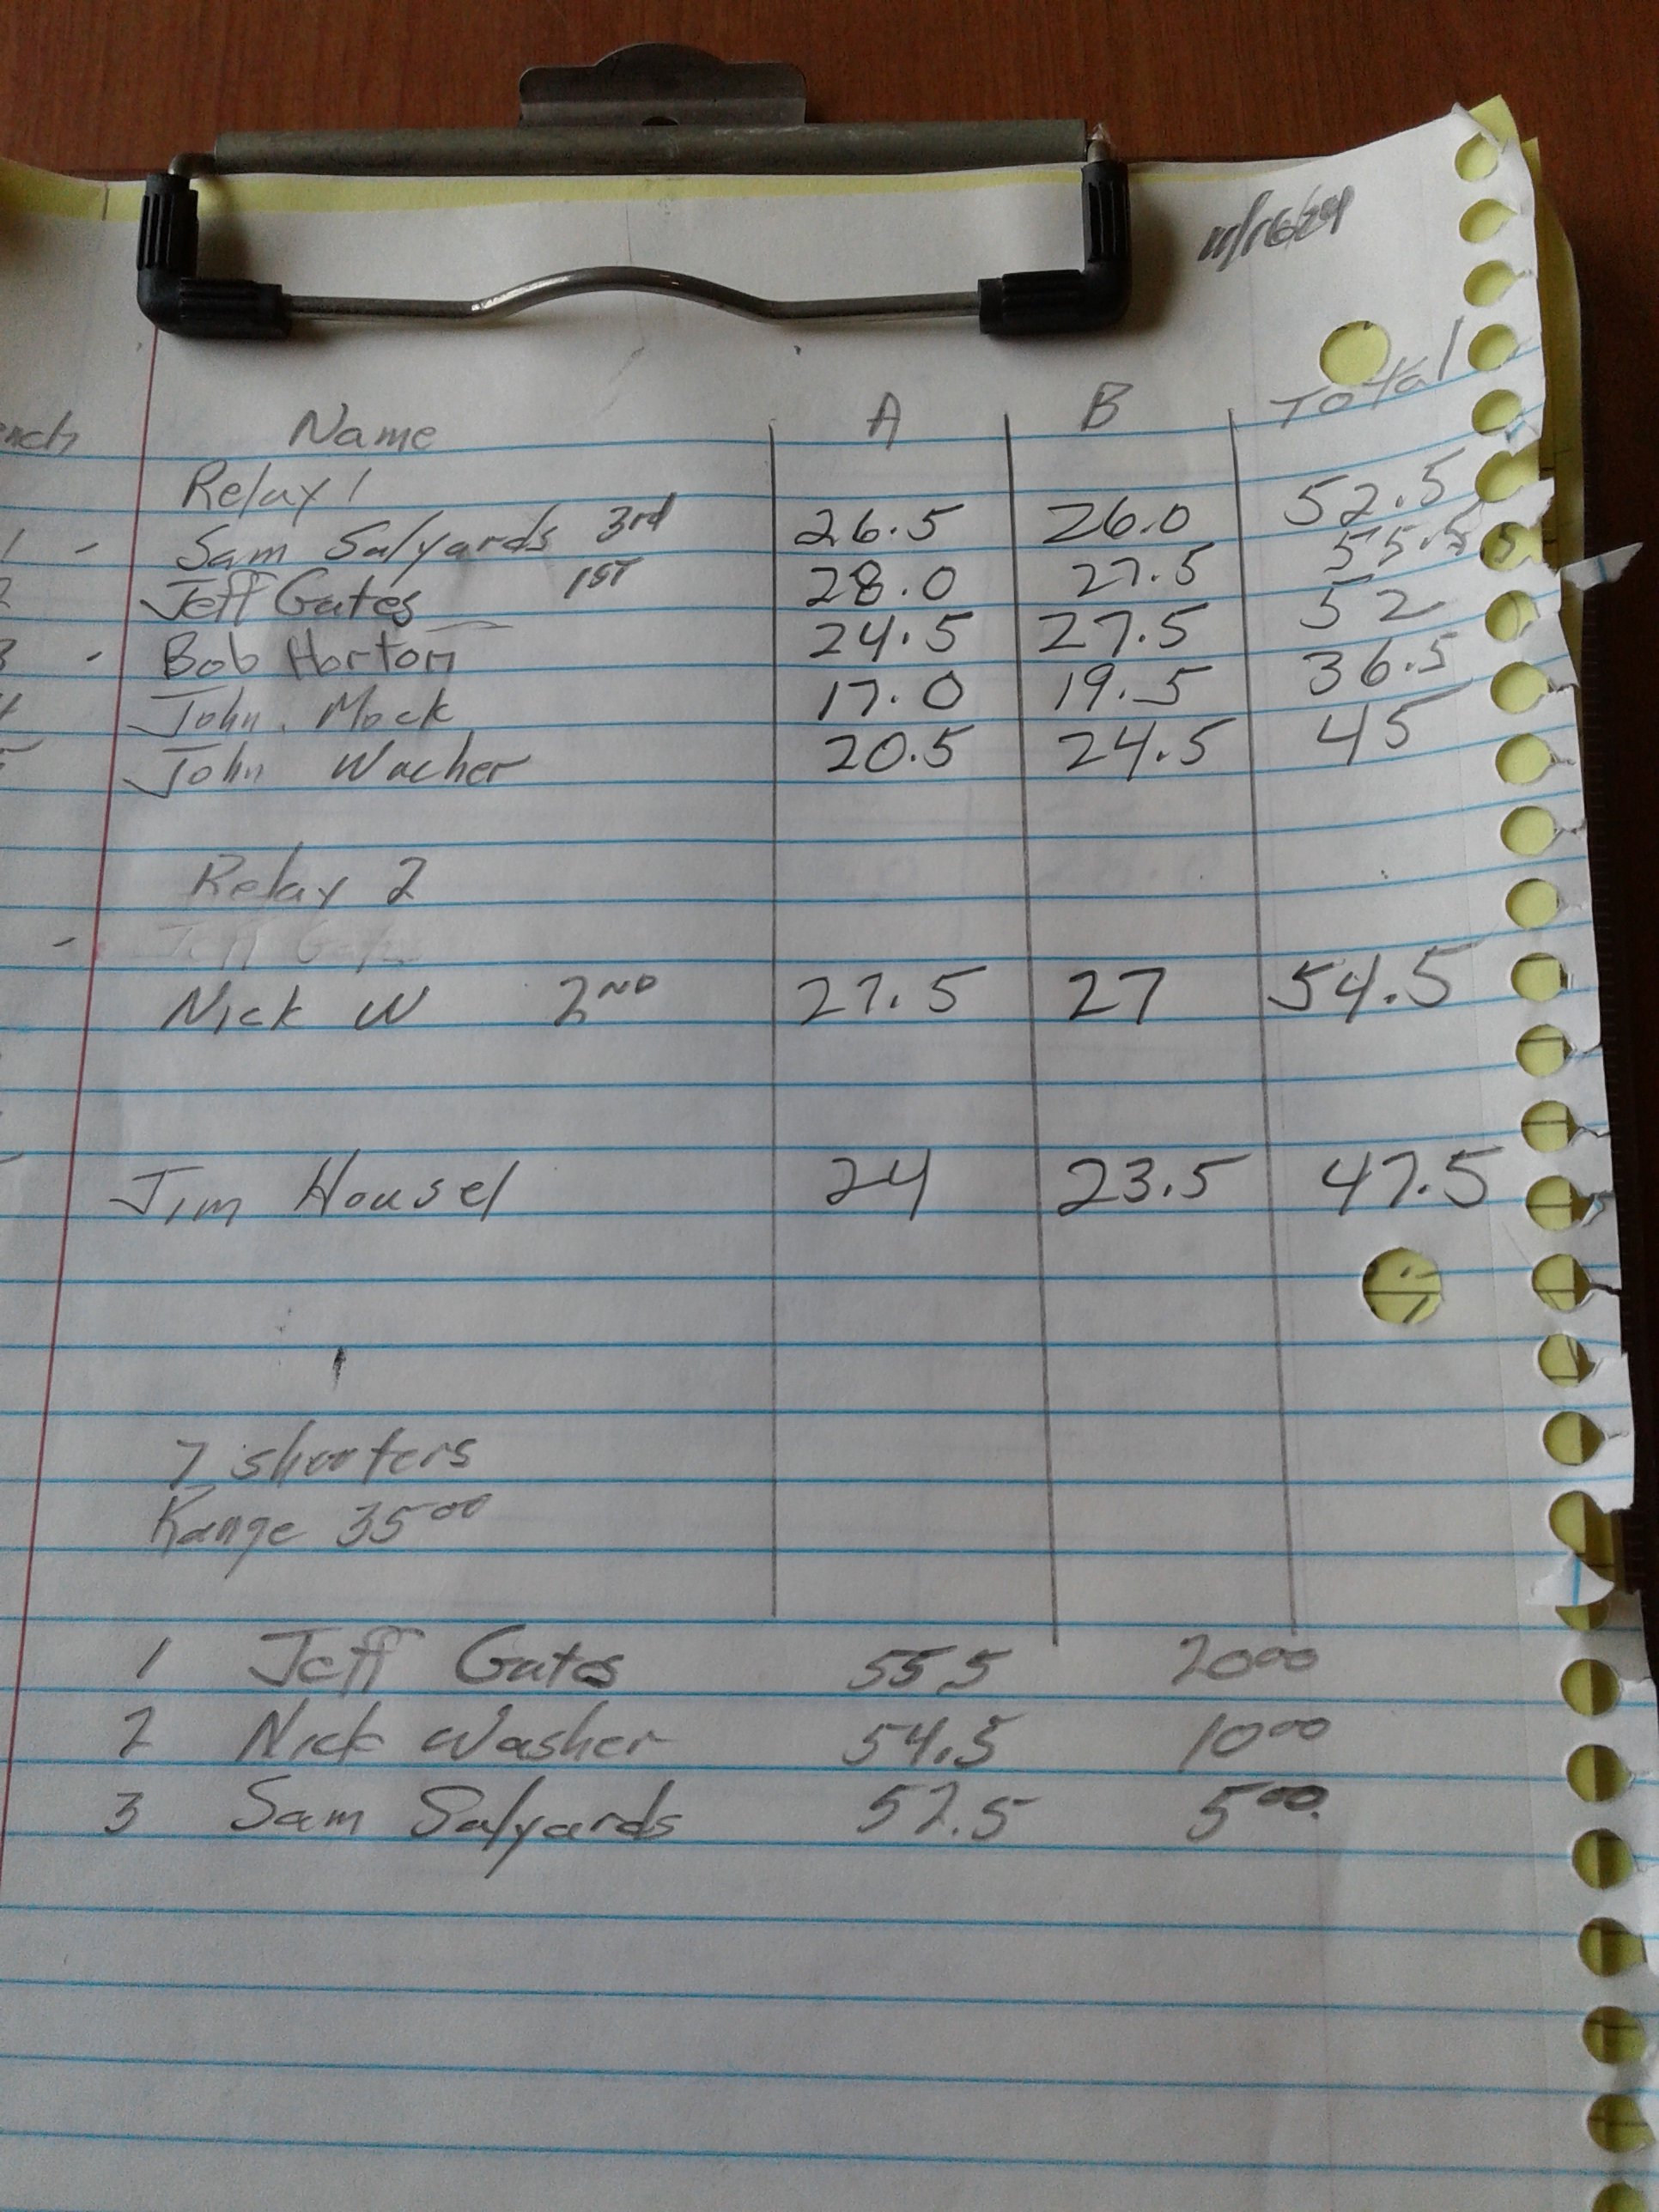 11/16/24
Name A B Total
Relay 1
1 - Sam Salyards 3rd 26.5 26.0 52.5
2 Jeff Gates 1ST 28.0 27.5 55.5
3 - Bob Horton 24.5 27.5 52
4 John Mock 17.0 19.5 36.5
5 John Wacher 20.5 24.5 45
Relay 2
- Jeff Gates
Nick W 2ND 27.5 27 54.5
Jim Housel 24 23.5 47.5
7 shooters
Range 35 00
1 Jeff Gates 55.5 20 00
2 Nick Washer 54.5 10 00
3 Sam Salyards 52.5 5 00